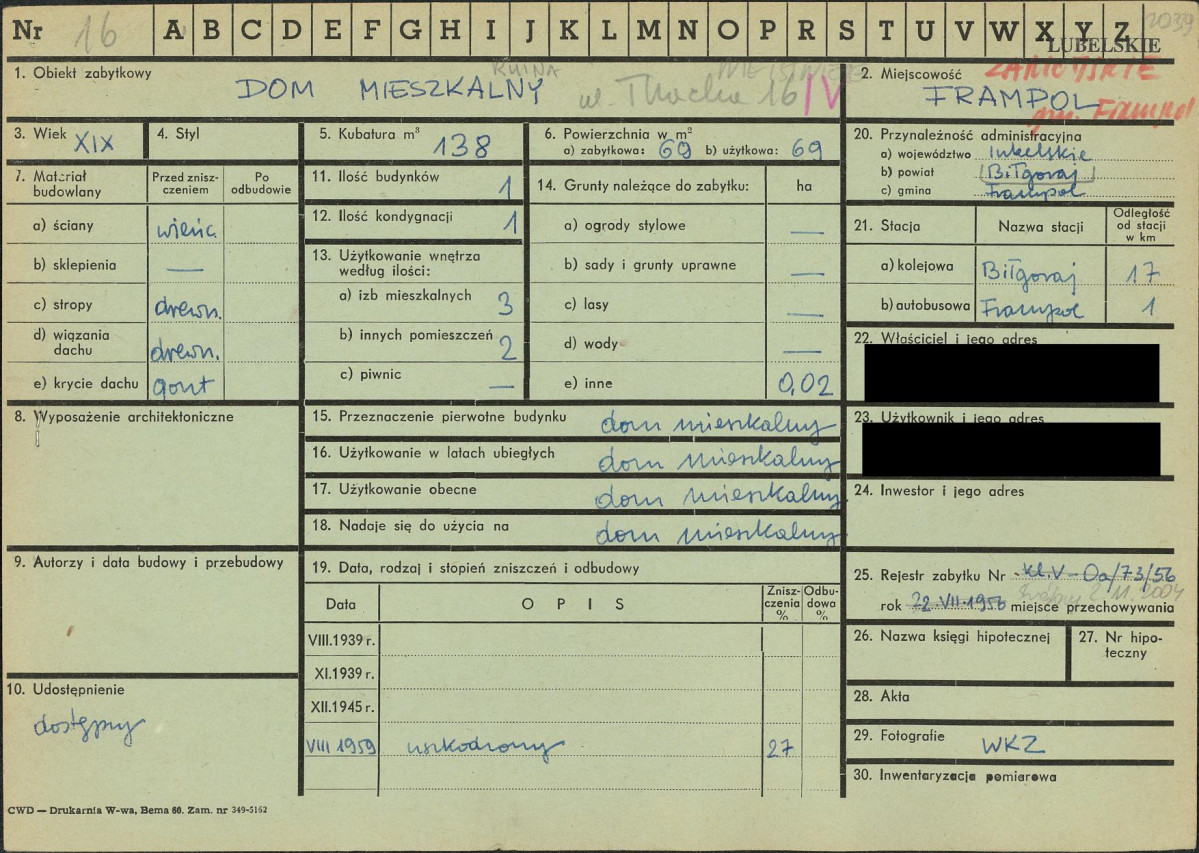 Nr 16 A B C D E F G H I J K L M N O P R S T U V W X Y Z 2039
LUBELSKIE
1. Obiekt zabytkowy
RUINA
DOM MIESZKALNY ul. Tkacka 16/V
2. Miejscowość ZAMOJSKIE
FRAMPOL
gm. Frampol
3. Wiek XIX
4. Styl
5. Kubatura m³ 138
6. Powierzchnia w m²
a) zabytkowa: 69 b) użytkowa: 69
7. Materiał budowlany
Przed zniszczeniem
Po odbudowie
a) ściany wieńc.
b) sklepienia —
c) stropy drewn.
d) wiązania dachu drewn.
e) krycie dachu gont
8. Wyposażenie architektoniczne
9. Autorzy i data budowy i przebudowy
10. Udostępnienie
dostępny
11. Ilość budynków 1
12. Ilość kondygnacji 1
13. Użytkowanie wnętrza według ilości:
a) izb mieszkalnych 3
b) innych pomieszczeń 2
c) piwnic —
14. Grunty należące do zabytku: ha
a) ogrody stylowe —
b) sady i grunty uprawne —
c) lasy —
d) wody —
e) inne 0,02
15. Przeznaczenie pierwotne budynku dom mieszkalny
16. Użytkowanie w latach ubiegłych dom mieszkalny
17. Użytkowanie obecne dom mieszkalny
18. Nadaje się do użycia na dom mieszkalny
19. Data, rodzaj i stopień zniszczeń i odbudowy
Data
OPIS
Zniszczenia %
Odbudowa %
VIII.1939 r.
XI.1939 r.
XII.1945 r.
VIII 1959 uszkodzony 27
20. Przynależność administracyjna
a) województwo lubelskie
b) powiat Biłgoraj
c) gmina Frampol
21. Stacja
Nazwa stacji
Odległość od stacji w km
a) kolejowa Biłgoraj 17
b) autobusowa Frampol 1
22. Właściciel i jego adres
23. Użytkownik i jego adres
24. Inwestor i jego adres
25. Rejestr zabytku Nr kl.V-0a/73/56
rok 22 VII 1956 miejsce przechowywania
26. Nazwa księgi hipotecznej
27. Nr hipoteczny
28. Akta
29. Fotografie WKZ
30. Inwentaryzacja pomiarowa
CWD — Drukarnia W-wa, Bema 60. Zam. nr 349-5162